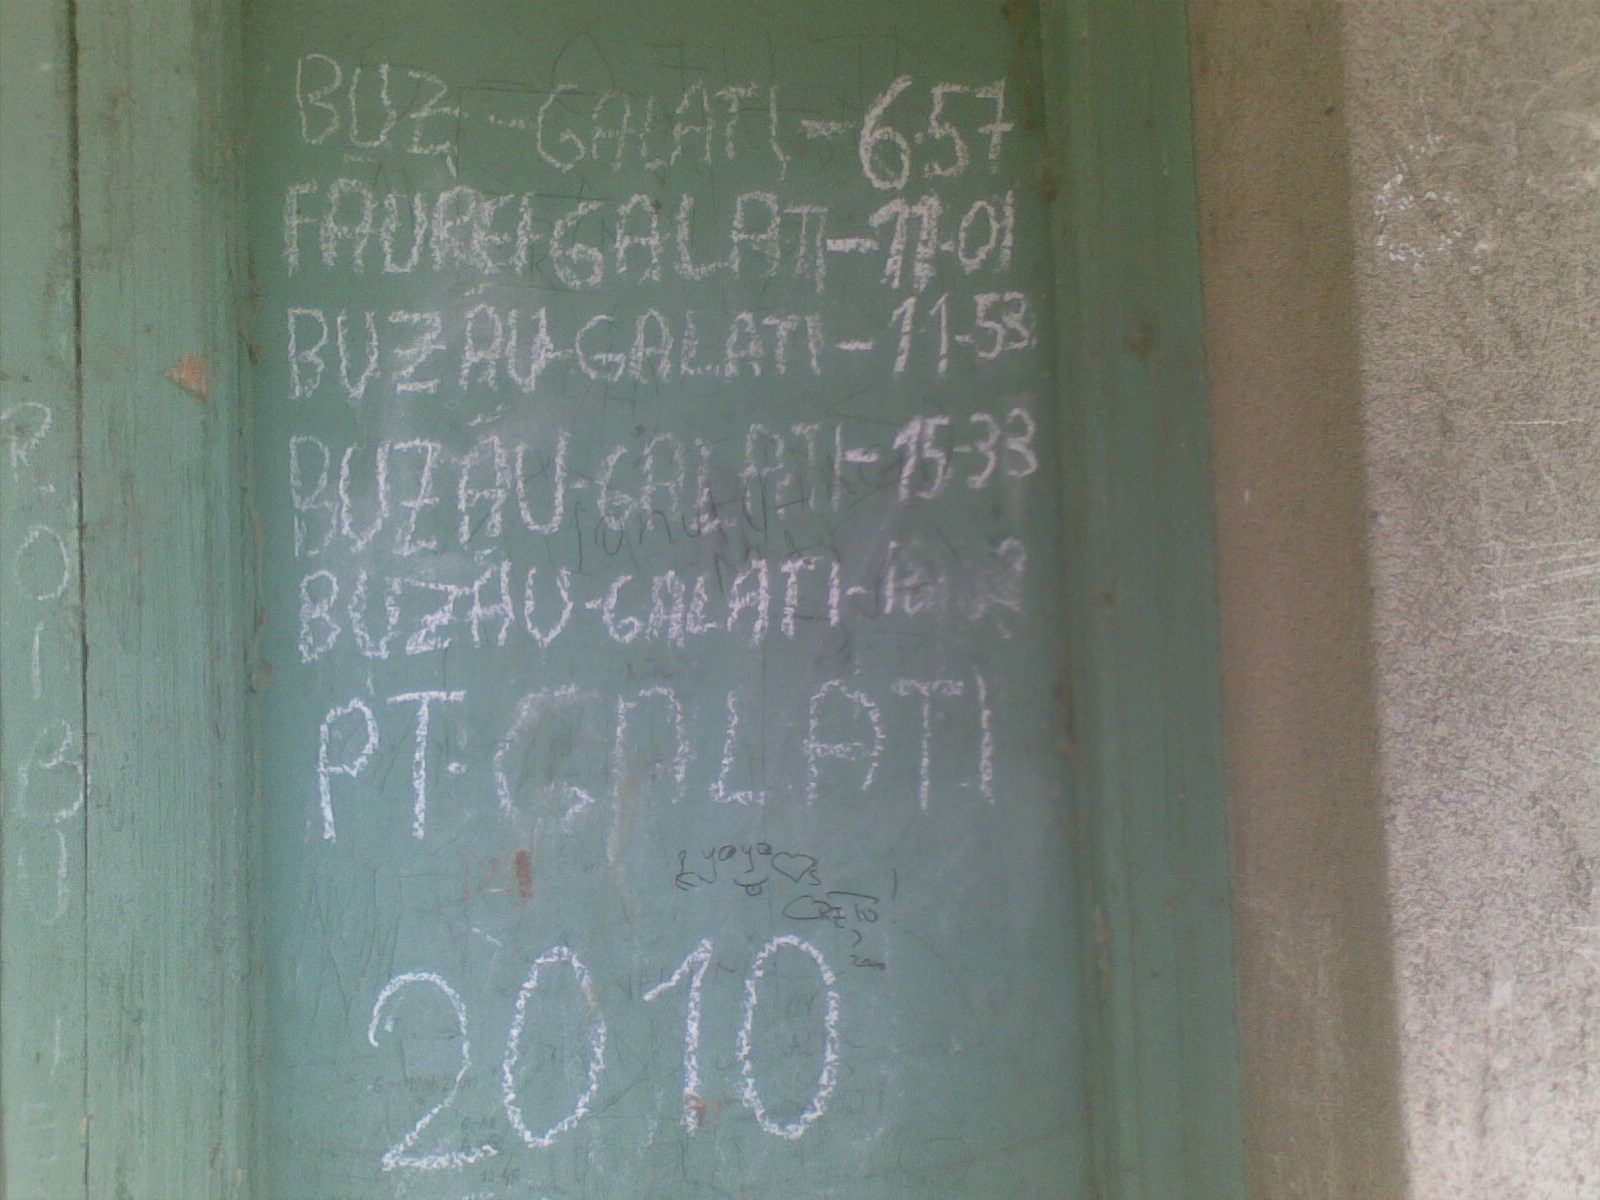 BUZ - GALAȚI - 6.57
FĂUREI-GALATI - 11-01
BUZĂU-GALATI - 11-53
BUZĂU-GALATI-15-33
BUZĂU-GALATI-
PT. GALATI
2010